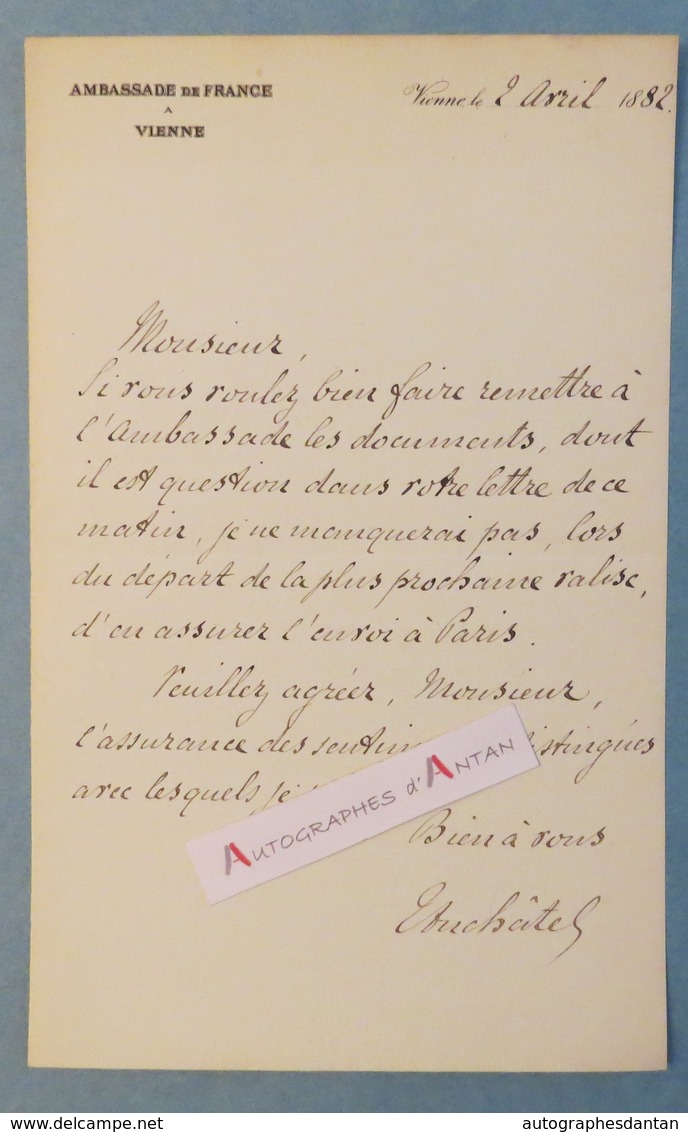 AMBASSADE DE FRANCE
A
VIENNE
Vienne, le 2 Avril 1882.
Monsieur,
Si vous voulez bien faire remettre à
l'Ambassade les documents, dont
il est question dans votre lettre de ce
matin, je ne manquerai pas, lors
du départ de la plus prochaine valise,
d'en assurer l'envoi à Paris.
Veuillez agréer, Monsieur,
l'assurance des sentim distingués
avec lesquels je
AUTOGRAPHES d'ANTAN
Bien à vous
Duchâtel
delcampe.net
autographesdantan